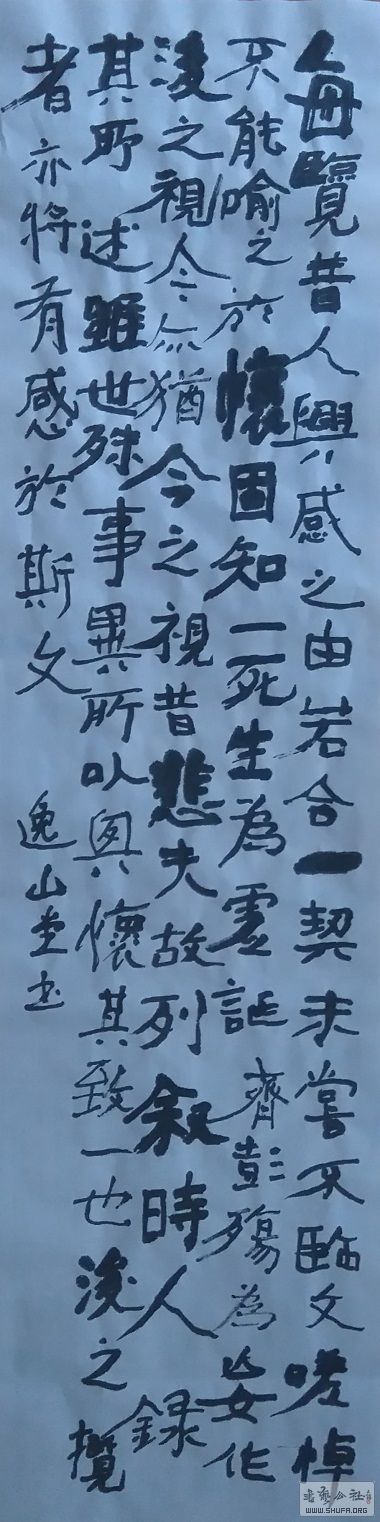 每覽昔人興感之由若合一契未嘗不臨文嗟悼
不能喻之於懷固知一死生為虛誕齊彭殤為妄作
後之視今亦猶今之視昔悲夫故列敘時人錄
其所述雖世殊事異所以興懷其致一也後之攬
者亦將有感於斯文
逸山堂書
书艺公社
WWW.SHUFA.ORG